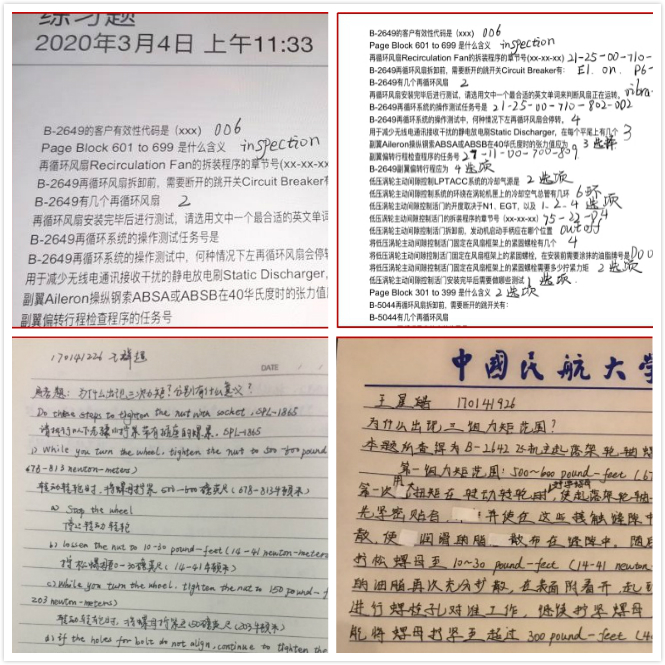 练习题
2020年3月4日 上午11:33
B-2649的客户有效性代码是（xxx） 006
Page Block 601 to 699 是什么含义 inspection
再循环风扇Recirculation Fan的拆装程序的章节号(xx-xx-xx)
B-2649再循环风扇拆卸前，需要断开的跳开关Circuit Breaker有
B-2649有几个再循环风扇 2
再循环风扇安装完毕后进行测试，请选用文中一个最合适的英文单词
B-2649再循环系统的操作测试任务号是
B-2649再循环系统的操作测试中，何种情况下左再循环风扇会停转
用于减少无线电通讯接收干扰的静电放电刷Static Discharger,
副翼Aileron操纵钢索ABSA或ABSB在40华氏度时的张力值应
副翼偏转行程检查程序的任务号
B-2649的客户有效性代码是（xxx） 006
Page Block 601 to 699 是什么含义 inspection
再循环风扇Recirculation Fan的拆装程序的章节号(xx-xx-xx) 21-25-00-710-
B-2649再循环风扇拆卸前，需要断开的跳开关Circuit Breaker有: E1. on. P6-
B-2649有几个再循环风扇 2
再循环风扇安装完毕后进行测试，请选用文中一个最合适的英文单词来判断风扇正在运转, vibra-
B-2649再循环系统的操作测试任务号是 21-25-00-710-802-002
B-2649再循环系统的操作测试中，何种情况下左再循环风扇会停转， 4
用于减少无线电通讯接收干扰的静电放电刷Static Discharger, 在每个平尾上有几个 3
副翼Aileron操纵钢索ABSA或ABSB在40华氏度时的张力值应为 3 选择
副翼偏转行程检查程序的任务号 27-11-00-700-809
B-2649副翼偏转行程应为 4 选项
低压涡轮主动间隙控制LPTACC系统的冷却气源是 2 选项
低压涡轮主动间隙控制系统的环绕在涡轮机匣上的冷却空气总管有几环 6环
低压涡轮主动间隙控制活门的开度取决于N1、EGT，以及 1.2.4 选项
低压涡轮主动间隙控制活门的拆装程序的章节号（xx-xx-xx） 75-22-04
低压涡轮主动间隙控制活门拆卸前，发动机起动手柄应在那个位置 cut off
将低压涡轮主动间隙控制活门固定在风扇框架上的紧固螺栓有几个 4
将低压涡轮主动间隙控制活门固定在风扇框架上的紧固螺栓，在安装前需要涂抹的油脂牌号是 D00
将低压涡轮主动间隙控制活门固定在风扇框架上的紧固螺栓需要多少拧紧力矩 2 选项
低压涡轮主动间隙控制活门安装完毕后需要做哪些测试 1 选项
Page Block 301 to 399 是什么含义 2 选项
B-5044再循环风扇拆卸前，需要断开的跳开关有:
B-5044有几个再循环风扇
170141226
DATE
思考题: 为什么出现三次力矩? 分别有什么意义?
Do these steps to tighten the nut when socket, SPL-1865
1) While you turn the wheel, tighten the nut to 500-600 pound
678-813 newton-meters)
转动轮毂时，将螺母拧紧 500-600磅英尺 (678-813牛顿米)
a) Stop the wheel
停止转动轮毂
b) loosen the nut to 10-30 pound-feet (14-41 newton-meters
拧松螺母10-30磅英尺 (14-41牛顿米)
c) While you turn the wheel, tighten the nut to 150 pound-f
203 newton-meters)
转动轮毂时，将螺母拧紧至150磅英尺 (203牛顿米)
d) if the holes for bolt do not align, continue to tighten the
中国民航大学
王星 170141926
为什么出现三组力矩范围?
本题所查得为B-2642飞机主起落架轮轴螺
第一组力矩范围: 500-600 pound-feet (67
第一次用扭矩在转动轮毂时，使起落架轮轴
并使在这些接触缝隙中
散，使润滑脂 散布在缝隙中，随后
拧松螺母至10~30 pound-feet (14-41 newton
润油脂再次充分扩散，在表面附着开，起到
进行螺栓孔对准工作，继续拧紧螺母
能将螺母拧紧至超过300 pound-feet (4